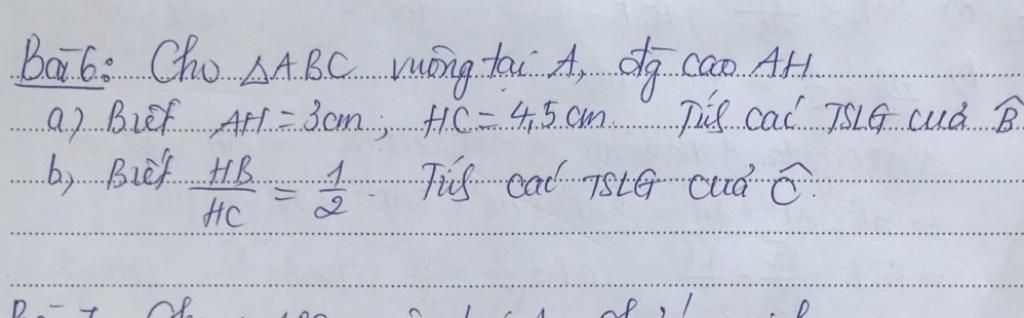 Bài 6: Cho △ABC vuông tại A, đg cao AH
a) Biết AH = 3cm; HC = 4,5cm Tính các TSLG của B̂
b, Biết HB/HC = 1/2. Tính các TSLG của Ĉ.